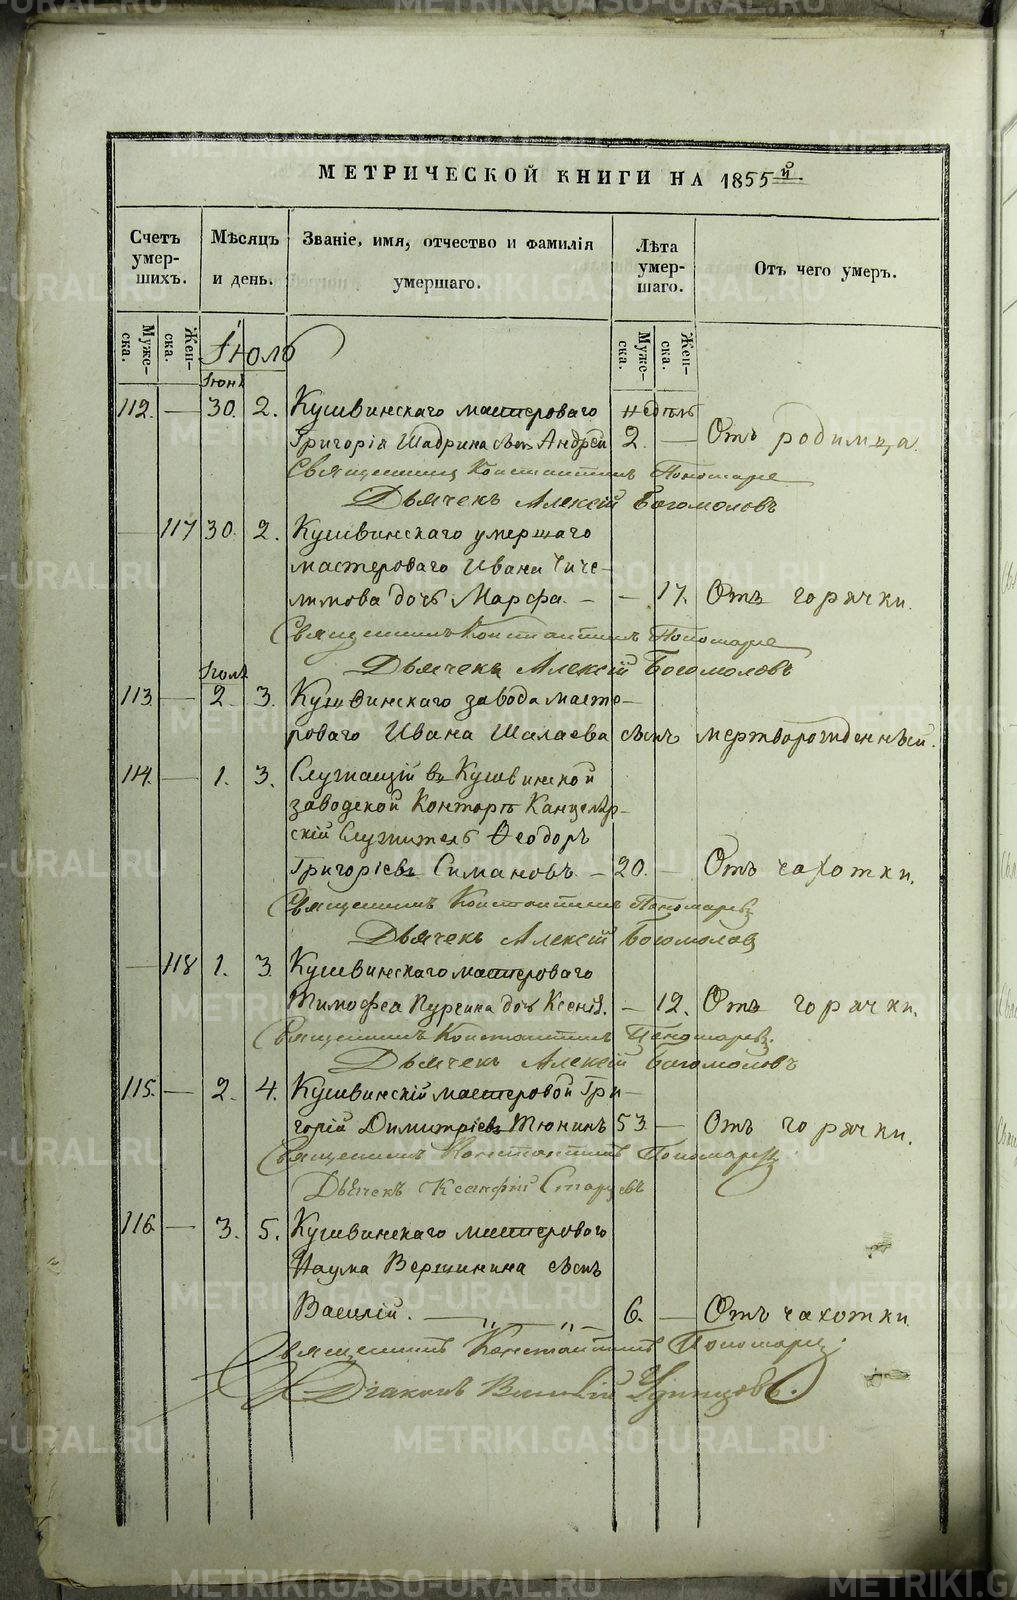 МЕТРИЧЕСКОЙ КНИГИ НА 1855й.
Счетъ умер-шихъ. Мѣсяцъ и день. Званіе, имя, отчество и фамилія умершаго. Лѣта умер-шаго. Отъ чего умеръ.
Муже-ска. Жен-ска. Муже-ска. Жен-ска.
Іюль
Іюнь
112. — 30. 2. Кушвинскаго мастероваго недѣль
Григорія Шадрина сынъ Андрей 2. — Отъ родимца.
Священникъ Константинъ Пономаре
Дьячекъ Алексій Богомоловъ
— 117 30. 2. Кушвинскаго умершаго
мастероваго Ивана Чиче-
лимова дочь Марфа. — — 17. Отъ горячки.
Священникъ Константинъ Пономаре
Дьячекъ Алексій Богомоловъ
Іюль
113. — 2. 3. Кушвинскаго завода масте-
роваго Ивана Шалаева сынъ мертворожденный.
114. — 1. 3. Служащій въ Кушвинской
заводской Конторѣ Канцеляр-
скій Служитель Ѳеодоръ
Григоріевъ Симановъ. — 20. — Отъ чахотки.
Священникъ Константинъ Пономаревъ
Дьячекъ Алексій Богомоловъ
— 118 1. 3. Кушвинскаго мастероваго
Тимофея Пургина дочь Ксенія. — 12. Отъ горячки.
Священникъ Константинъ Пономаревъ.
Дьячекъ Алексій Богомоловъ
115. — 2. 4. Кушвинскій мастеровой Гри-
горій Димитріевъ Тюнинъ 53. — Отъ горячки.
Священникъ Константинъ Пономаревъ
Дьячекъ Ксанфій Старцевъ
116. — 3. 5. Кушвинскаго мастероваго
Наума Вершинина сынъ
Василій. — „ — „ — 6. — Отъ чахотки
Священникъ Константинъ Пономаревъ.
Діаконъ
METRIKI.GASO-URAL.RU